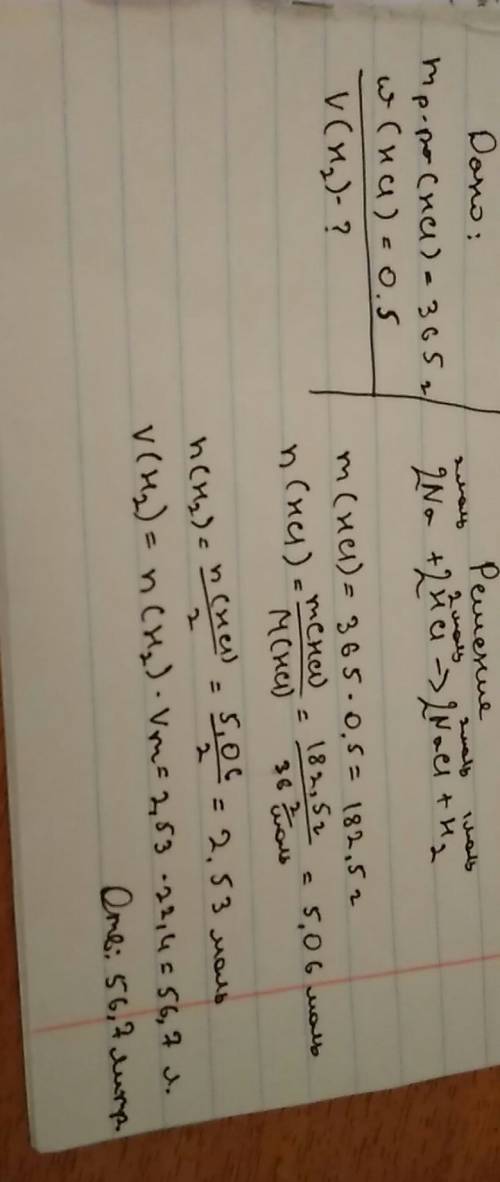 Дано:
m р-ра (HCl) = 365 г
ω (HCl) = 0.5
V(H₂) - ?
Решение
2моль 2моль 2моль 1моль
2Na + 2HCl → 2NaCl + H₂
m(HCl) = 365 · 0,5 = 182,5 г
n(HCl) = m(HCl) / M(HCl) = 182,5 г / 36 г/моль = 5,06 моль
n(H₂) = n(HCl) / 2 = 5,06 / 2 = 2,53 моль
V(H₂) = n(H₂) · Vm = 2,53 · 22,4 = 56,7 л.
Отв: 56,7 литр.